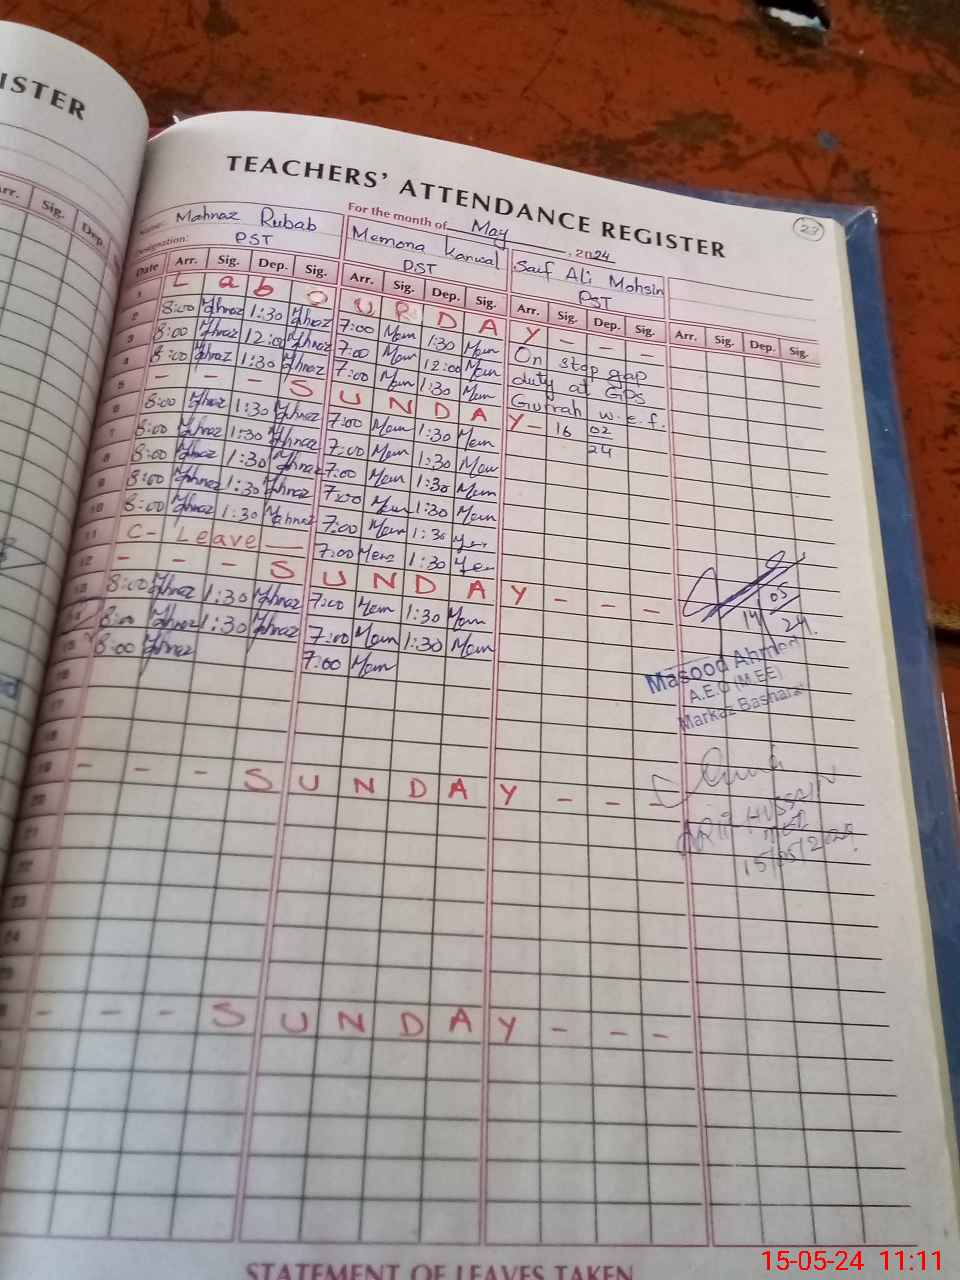 ISTER
Arr. Sig. Dep.
TEACHERS' ATTENDANCE REGISTER
23
For the month of May, 2024
Name: Mahnaz Rubab
Designation: PST
Memona Kanwal
PST
Saif Ali Mohsin
PST
Date Arr. Sig. Dep. Sig. Arr. Sig. Dep. Sig. Arr. Sig. Dep. Sig. Arr. Sig. Dep. Sig.
1 L a b O U R D A Y - - -
2 8:00 Mhnaz 1:30 Mhnaz 7:00 Mem 1:30 Mem
3 8:00 Mhnaz 12:00 Mhnaz 7:00 Mem 12:00 Mem
4 8:00 Mhnaz 1:30 Mhnaz 7:00 Mem 1:30 Mem
On stop gap
duty at GPS
w.e.f.
16 02
24
5 - - - S U N D A Y
6 8:00 Mhnaz 1:30 Mhnaz 7:00 Mem 1:30 Mem
7 8:00 Mhnaz 1:30 Mhnaz 7:00 Mem 1:30 Mem
8 8:00 Mhnaz 1:30 Mhnaz 7:00 Mem 1:30 Mem
9 8:00 Mhnaz 1:30 Mhnaz 7:00 Mem 1:30 Mem
10 8:00 Mhnaz 1:30 Mahnaz 7:00 Mem 1:30
11 C- Leave — 7:00 1:30
12 - - - S U N D A Y - - -
13 8:00 Mhnaz 1:30 Mhnaz 7:00 Mem 1:30 Mem
14 8:00 Mhnaz 1:30 Mhnaz 7:00 Mem 1:30 Mem
15 8:00 Mhnaz 7:00 Mem
14/05/24.
Masood Ahmed
A.E.O (M.EE)
Markaz
16
17
18
19 - - - S U N D A Y - - -
Arif Hussain
15/05/2024
20
21
22
23
24
25
26 - - - S U N D A Y - - -
STATEMENT OF LEAVES TAKEN
15-05-24 11:11